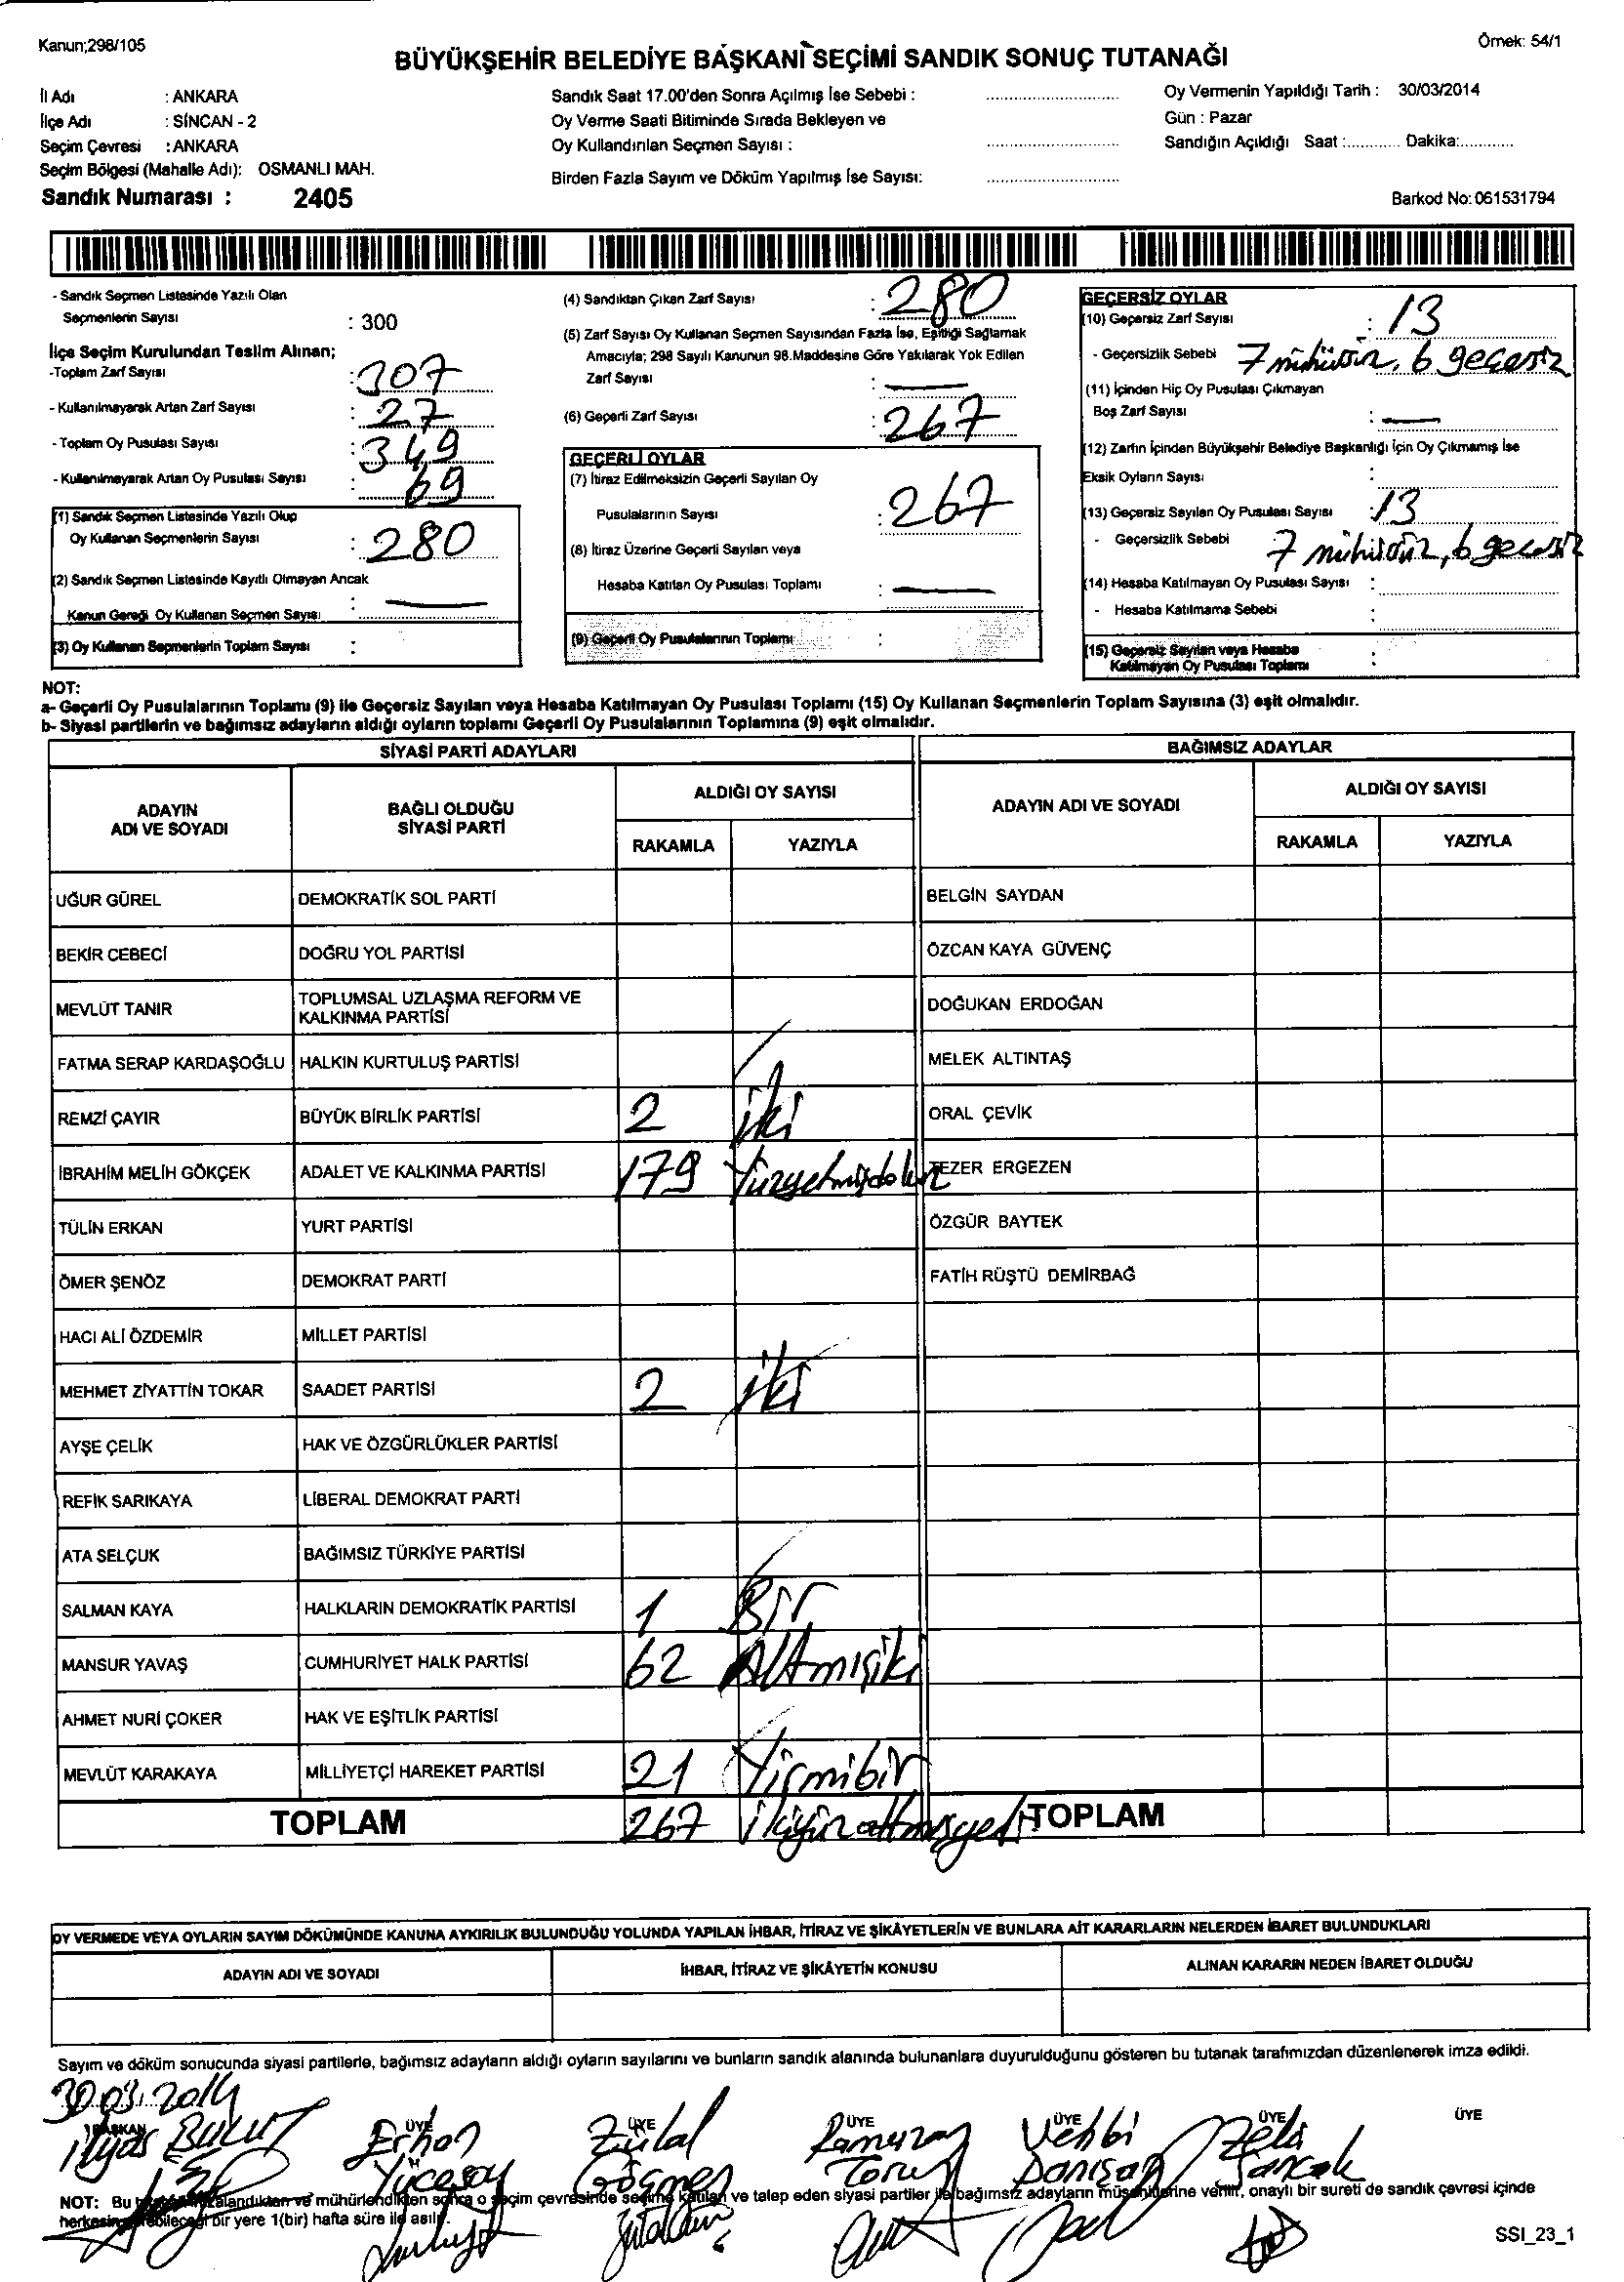 Kanun;298/105
Örnek: 54/1
BÜYÜKŞEHİR BELEDİYE BAŞKANI SEÇİMİ SANDIK SONUÇ TUTANAĞI
İl Adı : ANKARA
İlçe Adı : SİNCAN - 2
Seçim Çevresi : ANKARA
Seçim Bölgesi (Mahalle Adı): OSMANLI MAH.
Sandık Numarası : 2405
Sandık Saat 17.00'den Sonra Açılmış İse Sebebi :
Oy Verme Saati Bitiminde Sırada Bekleyen ve
Oy Kullandırılan Seçmen Sayısı :
Birden Fazla Sayım ve Döküm Yapılmış İse Sayısı:
Oy Vermenin Yapıldığı Tarih : 30/03/2014
Gün : Pazar
Sandığın Açıldığı Saat :............ Dakika:............
Barkod No:061531794
- Sandık Seçmen Listesinde Yazılı Olan
Seçmenlerin Sayısı : 300
İlçe Seçim Kurulundan Teslim Alınan;
-Toplam Zarf Sayısı : 307
- Kullanılmayarak Artan Zarf Sayısı : 27
- Toplam Oy Pusulası Sayısı : 349
- Kullanılmayarak Artan Oy Pusulası Sayısı : 69
(1) Sandık Seçmen Listesinde Yazılı Olup
Oy Kullanan Seçmenlerin Sayısı : 280
(2) Sandık Seçmen Listesinde Kayıtlı Olmayan Ancak
Kanun Gereği Oy Kullanan Seçmen Sayısı : —
(3) Oy Kullanan Seçmenlerin Toplam Sayısı :
(4) Sandıktan Çıkan Zarf Sayısı : 280
(5) Zarf Sayısı Oy Kullanan Seçmen Sayısından Fazla İse, Eşitliği Sağlamak
Amacıyla; 298 Sayılı Kanunun 98.Maddesine Göre Yakılarak Yok Edilen
Zarf Sayısı : —
(6) Geçerli Zarf Sayısı : 267
GEÇERLİ OYLAR
(7) İtiraz Edilmeksizin Geçerli Sayılan Oy
Pusulalarının Sayısı : 267
(8) İtiraz Üzerine Geçerli Sayılan veya
Hesaba Katılan Oy Pusulası Toplamı : —
(9) Geçerli Oy Pusulalarının Toplamı :
GEÇERSİZ OYLAR
(10) Geçersiz Zarf Sayısı : 13
- Geçersizlik Sebebi 7 mühürsüz, 6 geçersiz
(11) İçinden Hiç Oy Pusulası Çıkmayan
Boş Zarf Sayısı : —
(12) Zarfın İçinden Büyükşehir Belediye Başkanlığı İçin Oy Çıkmamış İse
Eksik Oyların Sayısı :
(13) Geçersiz Sayılan Oy Pusulası Sayısı : 13
- Geçersizlik Sebebi 7 mühürsüz, 6 geçersiz
(14) Hesaba Katılmayan Oy Pusulası Sayısı :
- Hesaba Katılmama Sebebi :
(15) Geçersiz Sayılan veya Hesaba
Katılmayan Oy Pusulası Toplamı :
NOT:
a- Geçerli Oy Pusulalarının Toplamı (9) ile Geçersiz Sayılan veya Hesaba Katılmayan Oy Pusulası Toplamı (15) Oy Kullanan Seçmenlerin Toplam Sayısına (3) eşit olmalıdır.
b- Siyasi partilerin ve bağımsız adayların aldığı oyların toplamı Geçerli Oy Pusulalarının Toplamına (9) eşit olmalıdır.
SİYASİ PARTİ ADAYLARI
ADAYIN ADI VE SOYADI BAĞLI OLDUĞU SİYASİ PARTİ ALDIĞI OY SAYISI
RAKAMLA YAZIYLA
UĞUR GÜREL DEMOKRATİK SOL PARTİ
BEKİR CEBECİ DOĞRU YOL PARTİSİ
MEVLÜT TANIR TOPLUMSAL UZLAŞMA REFORM VE KALKINMA PARTİSİ
FATMA SERAP KARDAŞOĞLU HALKIN KURTULUŞ PARTİSİ
REMZİ ÇAYIR BÜYÜK BİRLİK PARTİSİ 2 iki
İBRAHİM MELİH GÖKÇEK ADALET VE KALKINMA PARTİSİ 179 Yüzyetmişdokuz
TÜLİN ERKAN YURT PARTİSİ
ÖMER ŞENÖZ DEMOKRAT PARTİ
HACI ALİ ÖZDEMİR MİLLET PARTİSİ
MEHMET ZİYATTİN TOKAR SAADET PARTİSİ 2 iki
AYŞE ÇELİK HAK VE ÖZGÜRLÜKLER PARTİSİ
REFİK SARIKAYA LİBERAL DEMOKRAT PARTİ
ATA SELÇUK BAĞIMSIZ TÜRKİYE PARTİSİ
SALMAN KAYA HALKLARIN DEMOKRATİK PARTİSİ 1 Bir
MANSUR YAVAŞ CUMHURİYET HALK PARTİSİ 62 Altmışiki
AHMET NURİ ÇOKER HAK VE EŞİTLİK PARTİSİ
MEVLÜT KARAKAYA MİLLİYETÇİ HAREKET PARTİSİ 21 Yirmibir
TOPLAM 267 ikiyüzaltmışyedi
BAĞIMSIZ ADAYLAR
ADAYIN ADI VE SOYADI ALDIĞI OY SAYISI
RAKAMLA YAZIYLA
BELGİN SAYDAN
ÖZCAN KAYA GÜVENÇ
DOĞUKAN ERDOĞAN
MELEK ALTINTAŞ
ORAL ÇEVİK
TEZER ERGEZEN
ÖZGÜR BAYTEK
FATİH RÜŞTÜ DEMİRBAĞ
TOPLAM
OY VERMEDE VEYA OYLARIN SAYIM DÖKÜMÜNDE KANUNA AYKIRILIK BULUNDUĞU YOLUNDA YAPILAN İHBAR, İTİRAZ VE ŞİKÂYETLERİN VE BUNLARA AİT KARARLARIN NELERDEN İBARET BULUNDUKLARI
ADAYIN ADI VE SOYADI İHBAR, İTİRAZ VE ŞİKÂYETİN KONUSU ALINAN KARARIN NEDEN İBARET OLDUĞU
Sayım ve döküm sonucunda siyasi partilerle, bağımsız adayların aldığı oyların sayılarını ve bunların sandık alanında bulunanlara duyurulduğunu gösteren bu tutanak tarafımızdan düzenlenerek imza edildi.
30.03.2014
BAŞKAN ÜYE ÜYE ÜYE ÜYE ÜYE ÜYE
İlyas BULUT Erhan Yücesoy Zülal Göçmen Ramazan Torun Vehbi Danışan
NOT: Bu mühürlendikten sonra o seçim çevresinde seçime katılan ve talep eden siyasi partiler ile bağımsız adayların müşahitlerine verilir, onaylı bir sureti de sandık çevresi içinde
herkesin görebileceği bir yere 1(bir) hafta süre ile asılır.
SSI_23_1